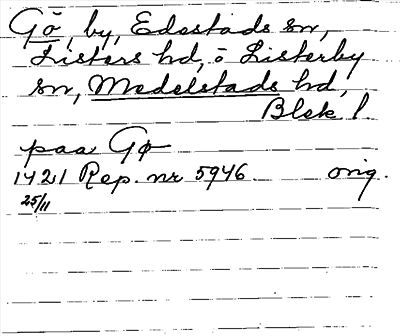 Gö, by, Edestads sn,
Listers hd, ö Listerby
sn, Medelstads hd,
Blek l
paa Gø
1421 Rep. nr 5946. orig.
25/11